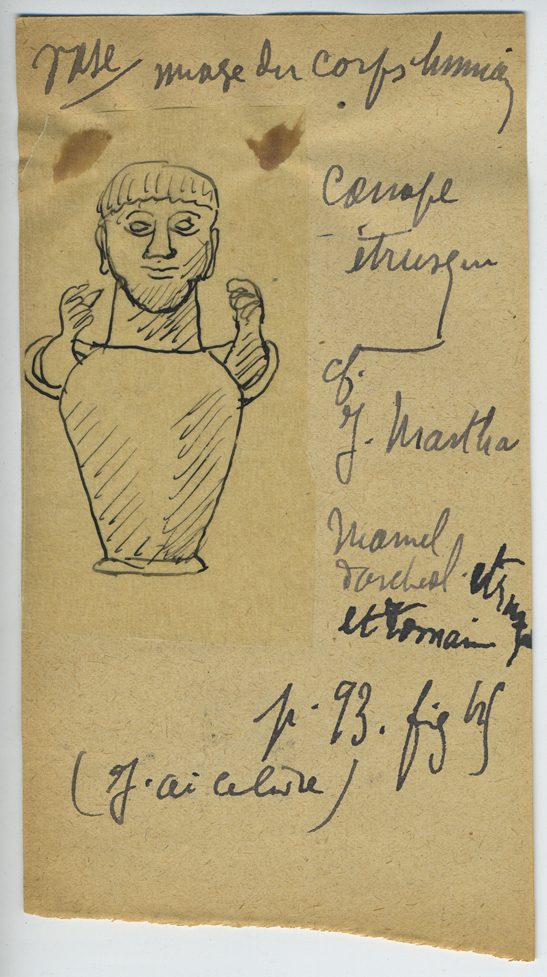 vase image du corps humain
Canope
étrusque
cf.
J. Martha
Manuel
d'archéol. étrusque
et romain
p. 93. fig
(J'ai ce livre)